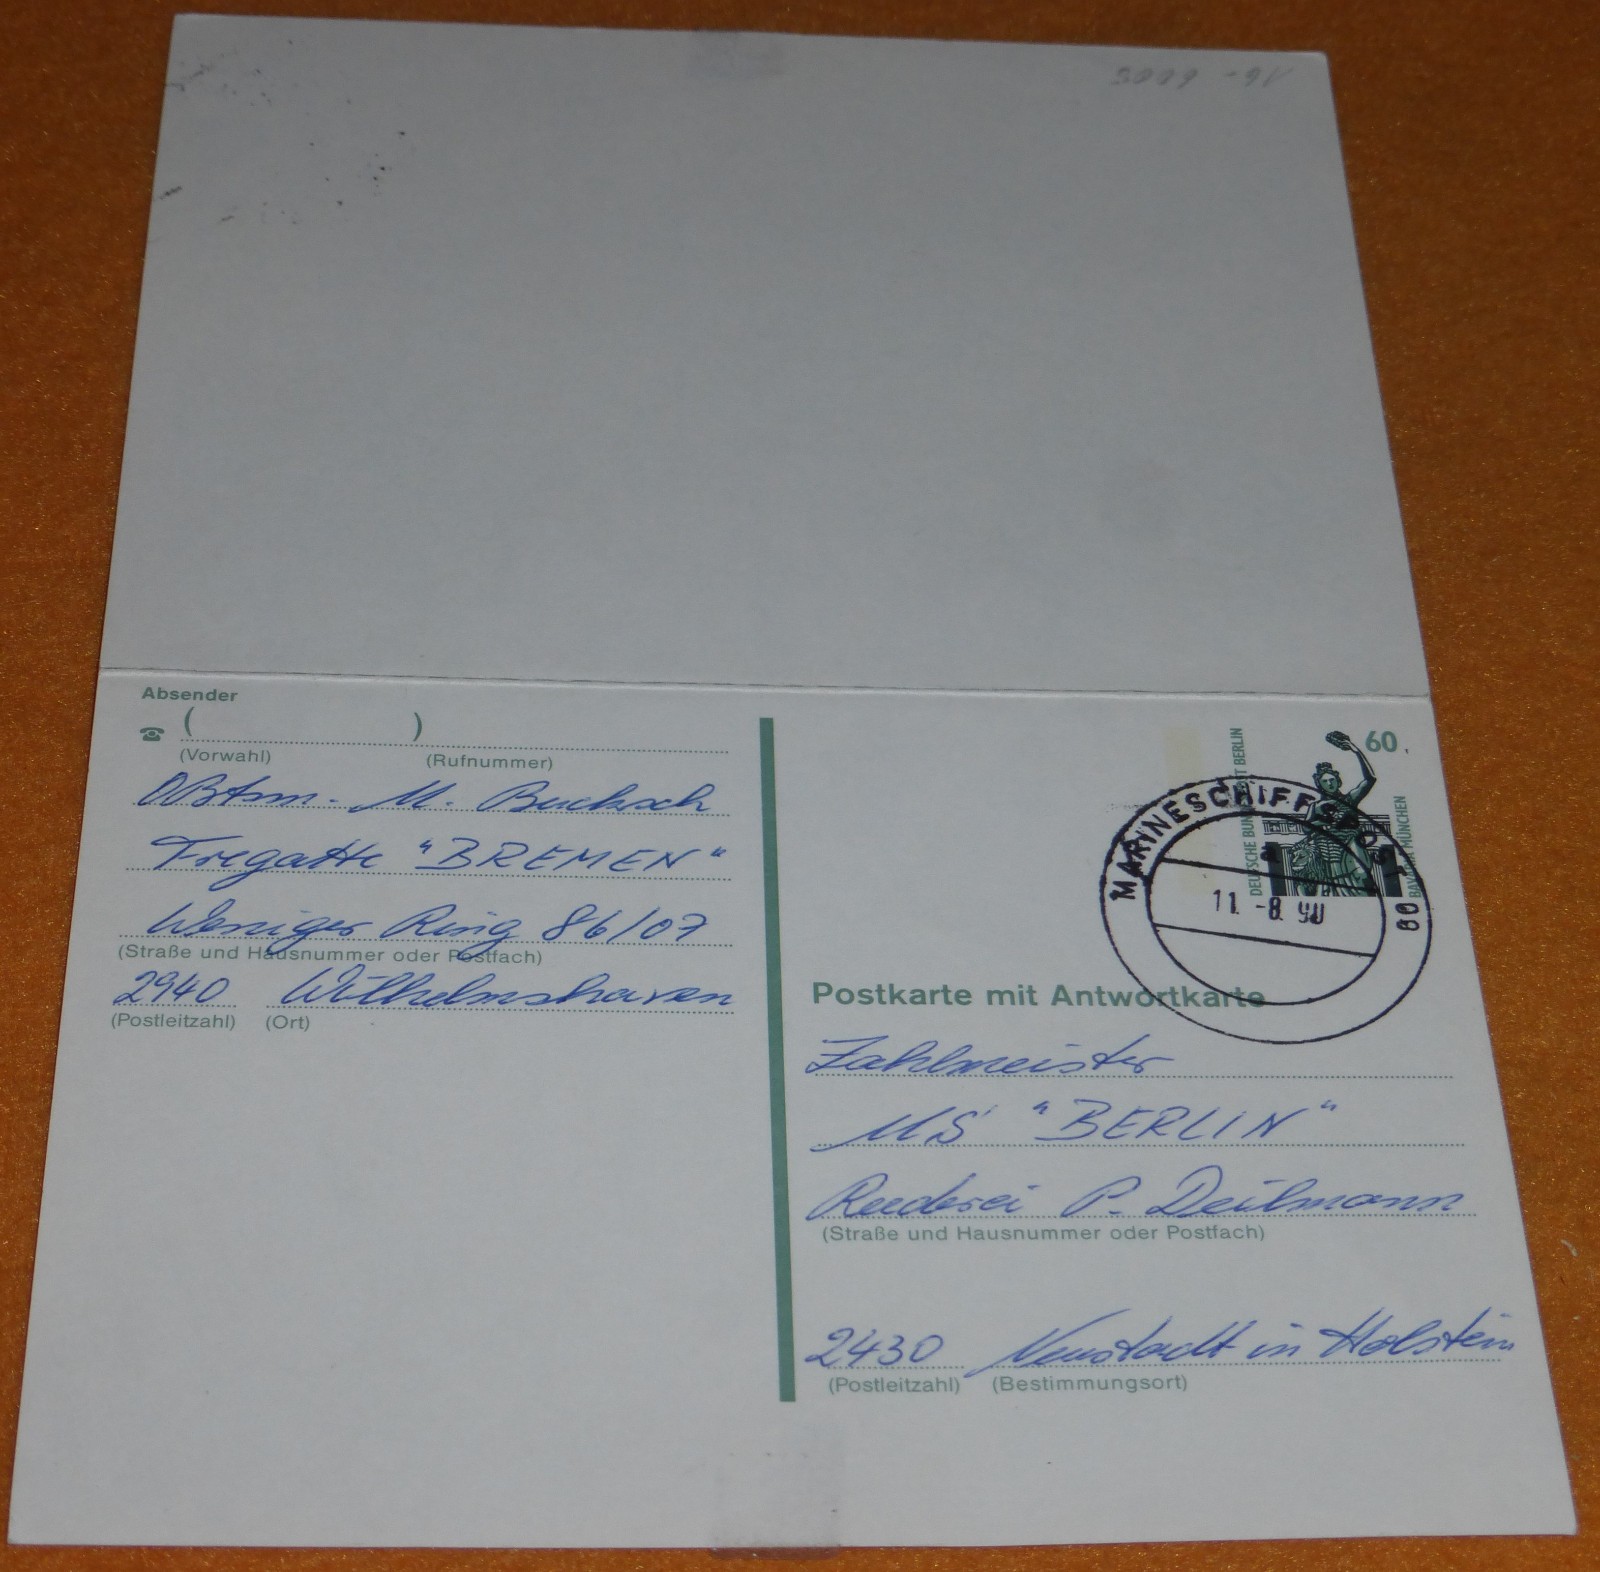 Absender
( )
(Vorwahl) (Rufnummer)
OBtsm. M. Bucksch
Fregatte "BREMEN"
Weniger Ring 86/07
(Straße und Hausnummer oder Postfach)
2940 Wilhelmshaven
(Postleitzahl) (Ort)
60
DEUTSCHE BUNDESPOST BERLIN
BAVARIA MÜNCHEN
MARINESCHIFFSPOST 08
a
11.-8.90
Postkarte mit Antwortkarte
Zahlmeister
MS "BERLIN"
Reederei P. Deilmann
(Straße und Hausnummer oder Postfach)
2430 Neustadt in Holstein
(Postleitzahl) (Bestimmungsort)